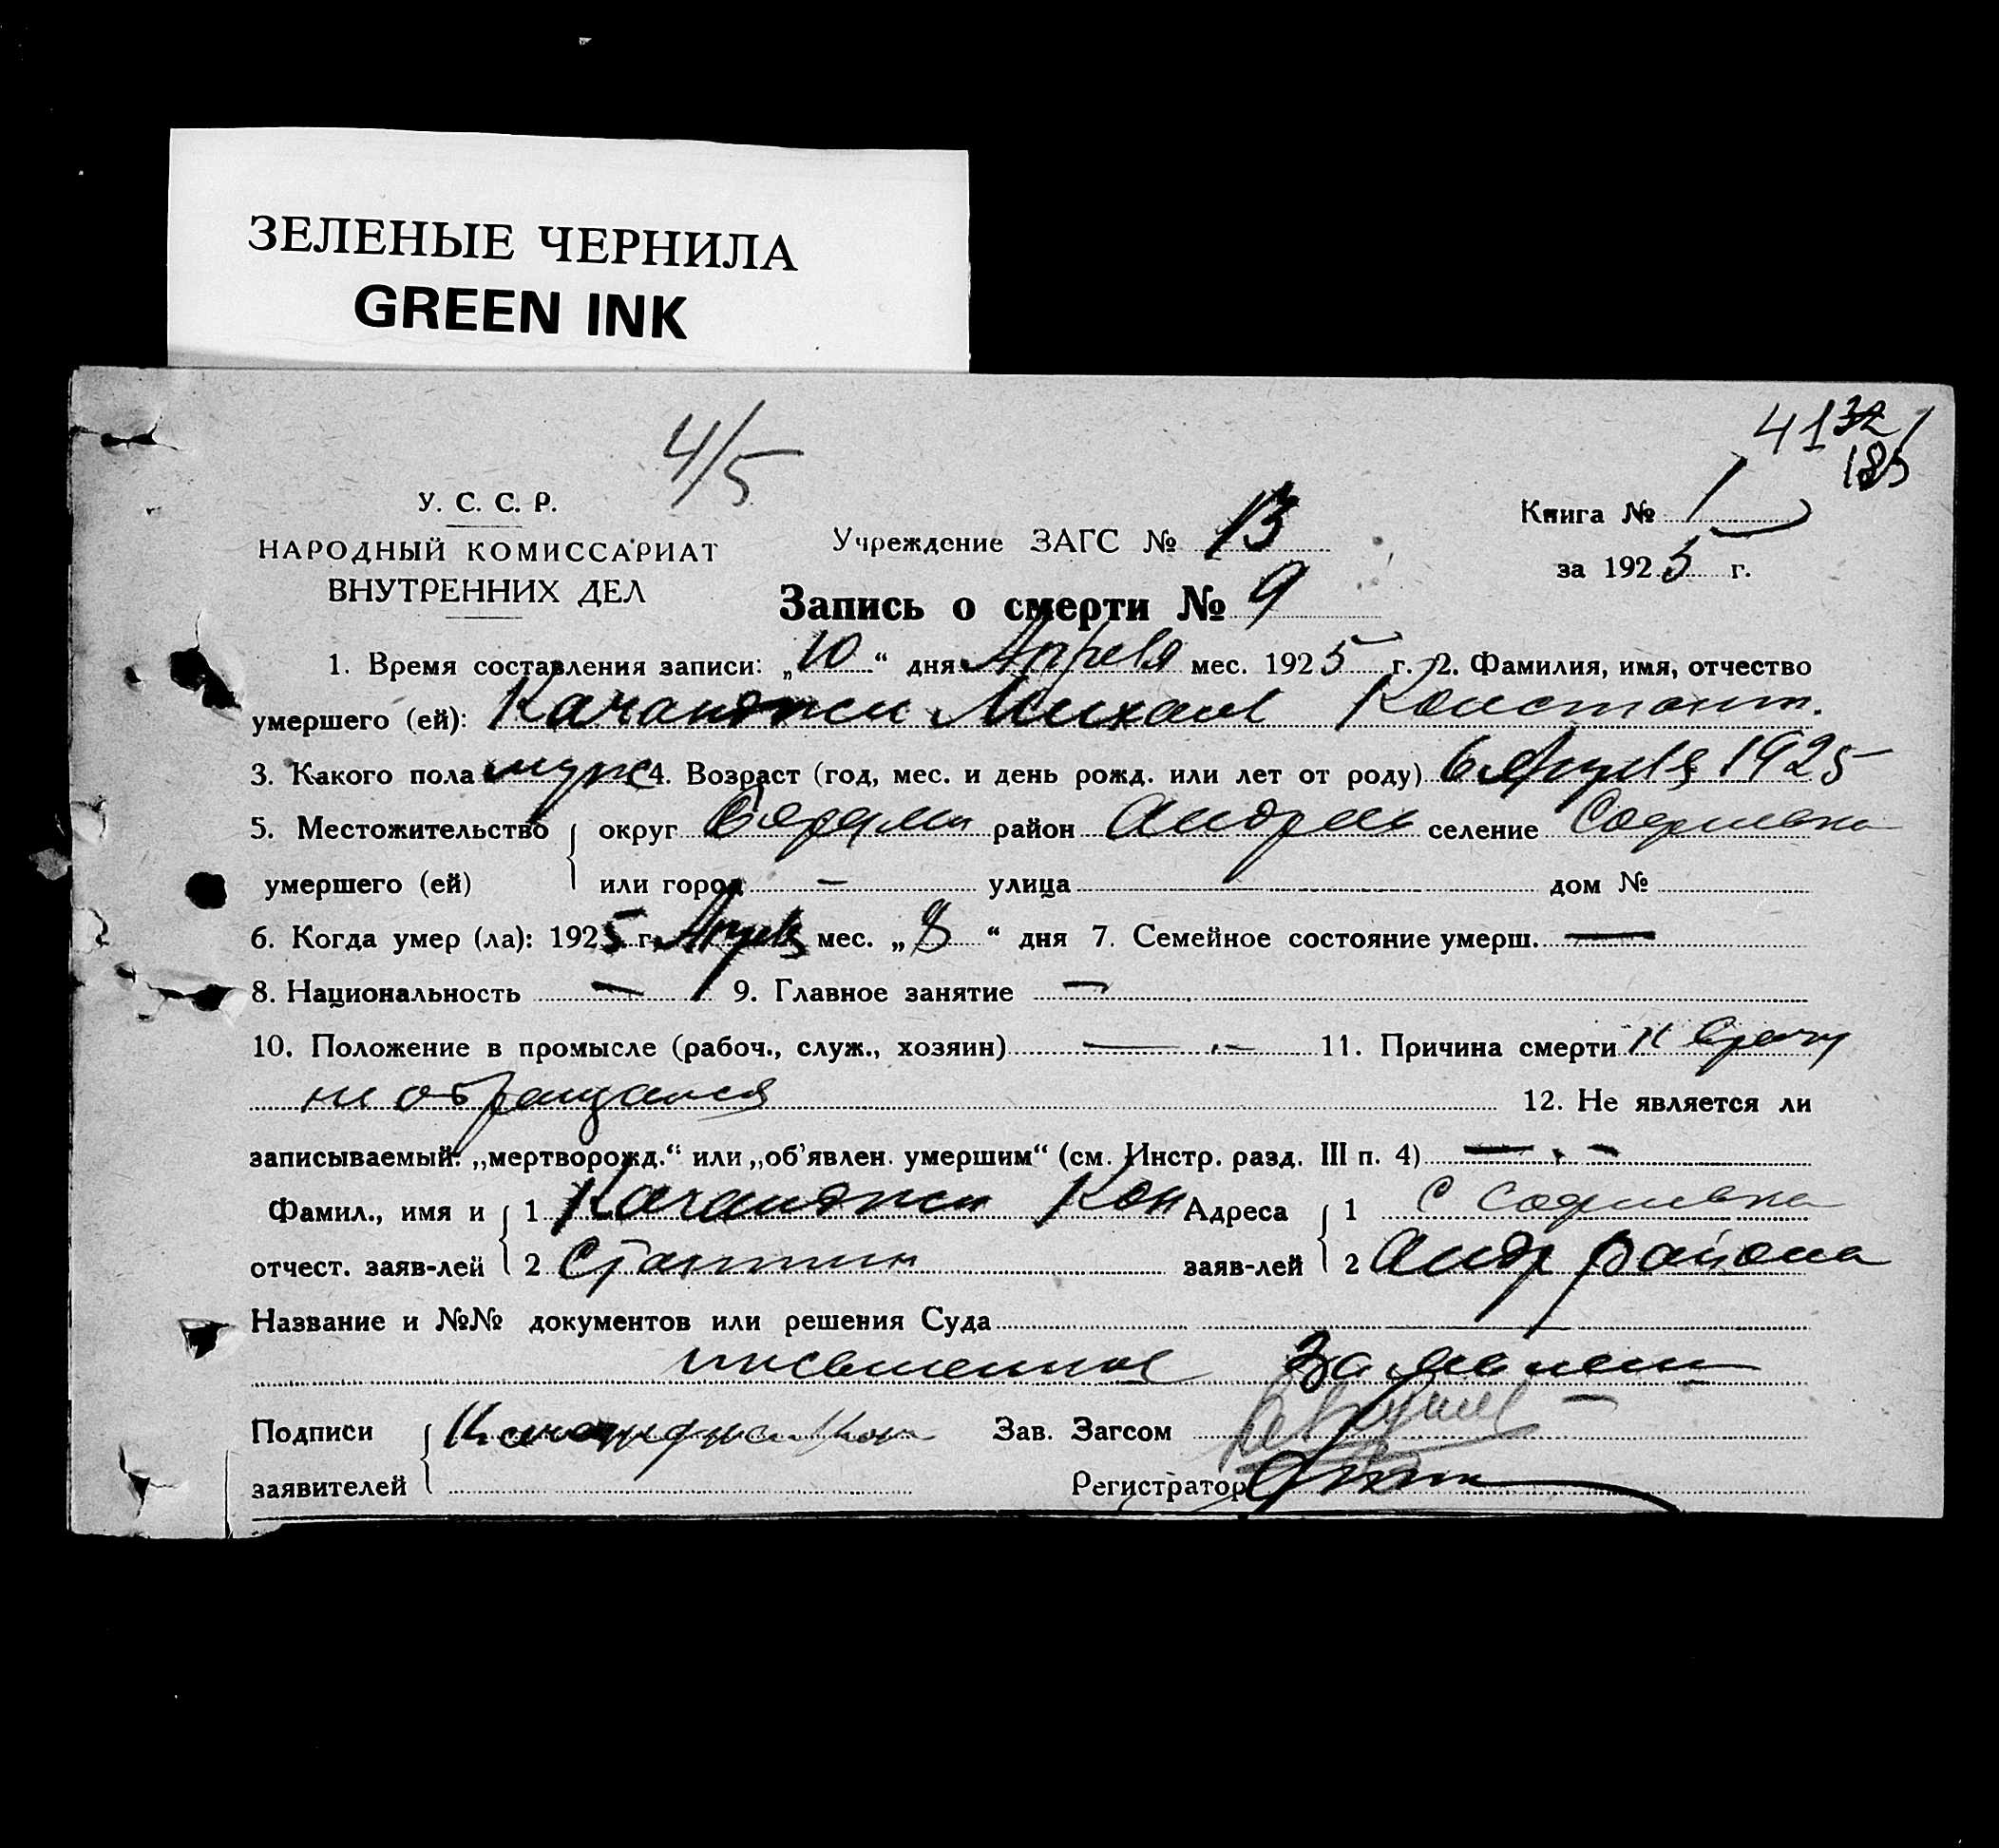 ЗЕЛЕНЫЕ ЧЕРНИЛА
GREEN INK
4/5
41 32
185
У. С. С. Р.
НАРОДНЫЙ КОМИССАРИАТ
ВНУТРЕННИХ ДЕЛ
Учреждение ЗАГС № 13
Книга № 1
за 1925 г.
Запись о смерти № 9
1. Время составления записи: „10“ дня Апреля мес. 1925 г. 2. Фамилия, имя, отчество
умершего (ей): Качанджи Михаил Константин.
3. Какого пола мужс 4. Возраст (год, мес. и день рожд. или лет от роду) 6 Апреля 1925
5. Местожительство округ район Андреев селение Софиевка
умершего (ей) или город — улица дом №
6. Когда умер (ла): 1925 г. Апрель мес. „8“ дня 7. Семейное состояние умерш. —
8. Национальность — 9. Главное занятие —
10. Положение в промысле (рабоч., служ., хозяин) — 11. Причина смерти К врачу
не обращался 12. Не является ли
записываемый: „мертворожд.“ или „об'явлен. умершим“ (см. Инстр. разд. III п. 4) —
Фамил., имя и 1 Качанджи Кон Адреса 1 С Софиевка
отчест. заяв-лей 2 Стантин заяв-лей 2 Андр района
Название и №№ документов или решения Суда
письменное Заявлени
Подписи Качанджи Кон Зав. Загсом
заявителей Регистратор